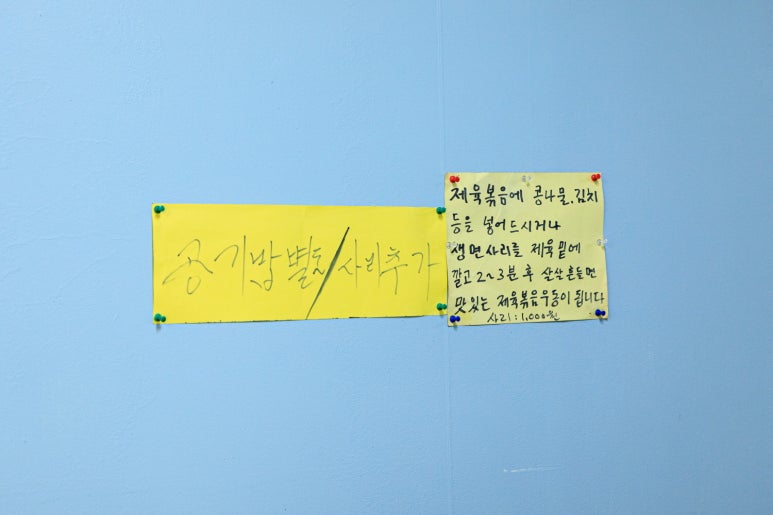 공기밥별도/사리추가
제육볶음에 콩나물,김치
등을 넣어드시거나
생면사리를 제육밑에
깔고 2~3분 후 살살흔들면
맛있는 제육볶음우동이 됩니다
사리:1,000원